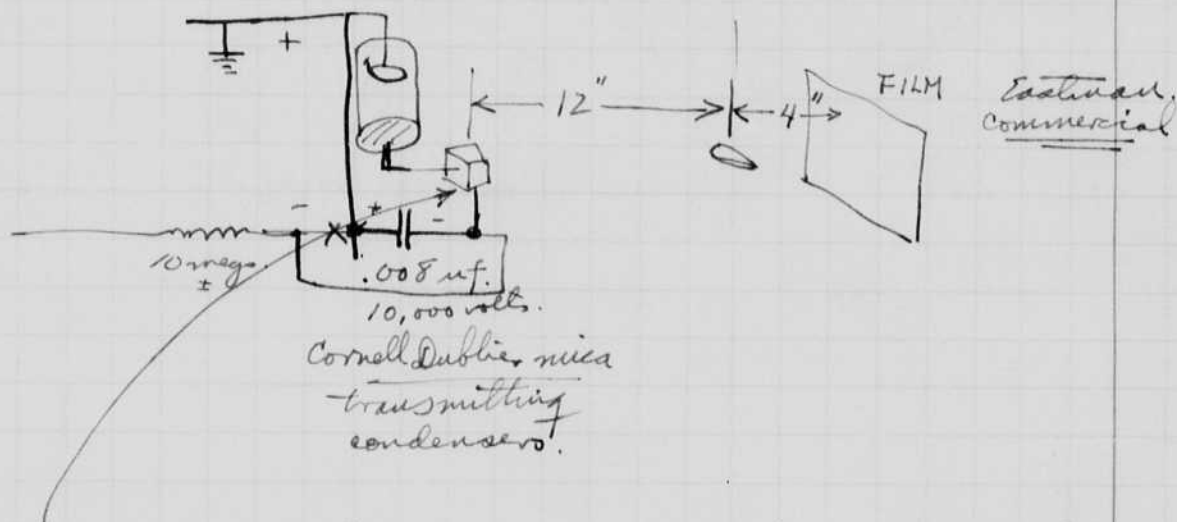 +
12"
4"
FILM
Eastman.
Commercial
-
+
-
10 megs.
±
.008 uf.
10,000 volts.
Cornell Dublier mica
transmitting
condensers.